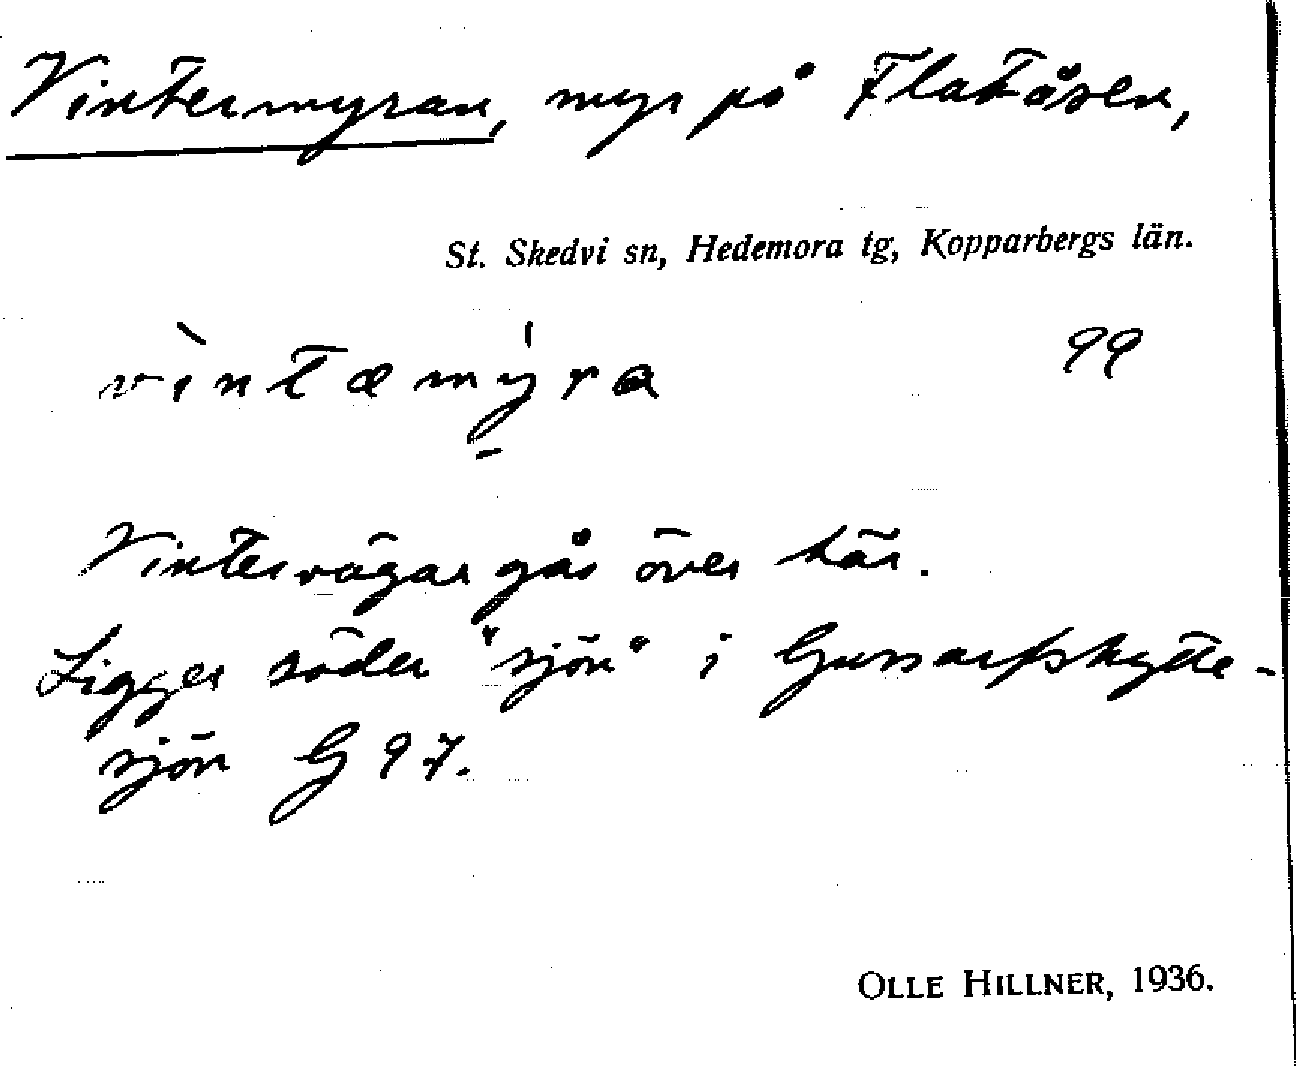 Vintermyran, myr på Flatåsen,
St. Skedvi sn, Hedemora tg, Kopparbergs län.
vìntæmýra 99
Vintervägar gås över här.
Ligger söder "sjön" i Gussarfshytte-
sjön G 97.
OLLE HILLNER, 1936.